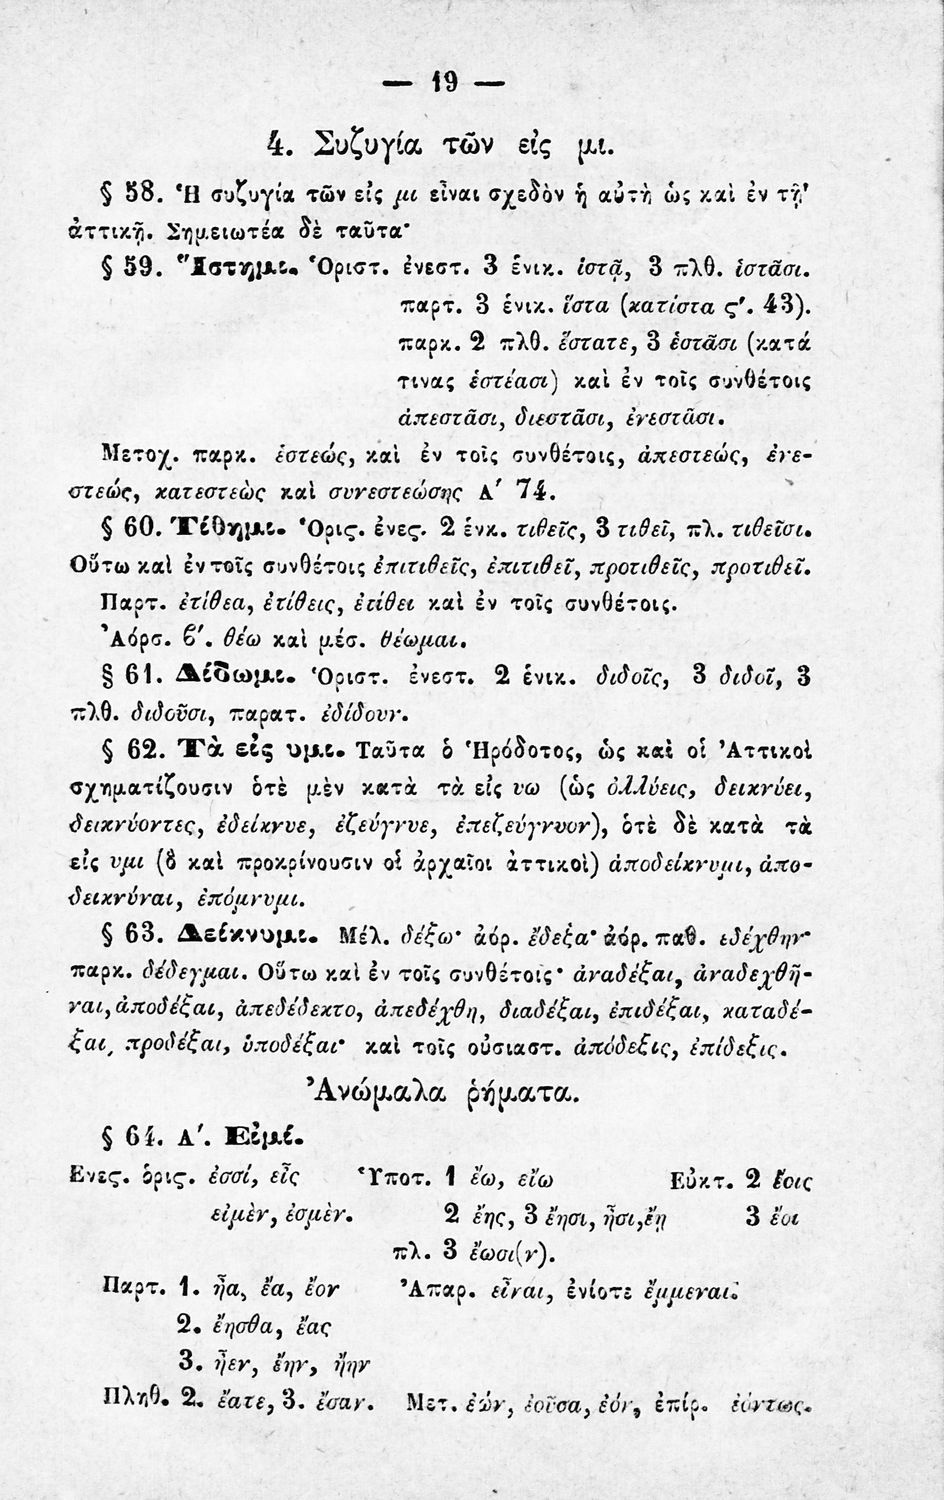 — 19 —
4. Συζυγία τῶν εἰς μι.
§ 58. Ἡ συζυγία τῶν εἰς μι εἶναι σχεδὸν ἡ αὐτὴ ὡς καὶ ἐν τῇ
ἀττικῇ. Σημειωτέα δὲ ταῦτα·
§ 59. Ἵστημι. Ὁριστ. ἐνεστ. 3 ἑνικ. ἱστᾷ, 3 πλθ. ἱστᾶσι.
παρτ. 3 ἑνικ. ἵστα (κατίστα ϛ′. 43).
παρκ. 2 πλθ. ἕστατε, 3 ἑστᾶσι (κατά
τινας ἑστέασι) καὶ ἐν τοῖς συνθέτοις
ἀπεστᾶσι, διεστᾶσι, ἐνεστᾶσι.
Μετοχ. παρκ. ἑστεώς, καὶ ἐν τοῖς συνθέτοις, ἀπεστεώς, ἐνε-
στεώς, κατεστεὼς καὶ συνεστεώσης Α′ 74.
§ 60. Τίθημι. Ὁρις. ἐνες. 2 ἑνκ. τιθεῖς, 3 τιθεῖ, πλ. τιθεῖσι.
Οὕτω καὶ ἐν τοῖς συνθέτοις ἐπιτιθεῖς, ἐπιτιθεῖ, προτιθεῖς, προτιθεῖ.
Παρτ. ἐτίθεα, ἐτίθεις, ἐτίθει καὶ ἐν τοῖς συνθέτοις.
Ἀόρσ. ϐ′. θέω καὶ μέσ. θέωμαι.
§ 61. Δίδωμι. Ὁριστ. ἐνεστ. 2 ἑνικ. διδοῖς, 3 διδοῖ, 3
πλθ. διδοῦσι, παρατ. ἐδίδουν.
§ 62. Τὰ εἰς υμι. Ταῦτα ὁ Ἡρόδοτος, ὡς καὶ οἱ Ἀττικοὶ
σχηματίζουσιν ὁτὲ μὲν κατὰ τὰ εἰς υω (ὡς ὀλλύεις, δεικνύει,
δεικνύοντες, ἐδείκνυε, ἐζεύγνυε, ἐπεζεύγνυον), ὁτὲ δὲ κατὰ τὰ
εἰς υμι (ὃ καὶ προκρίνουσιν οἱ ἀρχαῖοι ἀττικοὶ) ἀποδείκνυμι, ἀπο-
δεικνύναι, ἐπόμνυμι.
§ 63. Δείκνυμι. Μέλ. δέξω· ἀόρ. ἔδεξα· ἀόρ. παθ. εδέχθην·
παρκ. δέδεγμαι. Οὕτω καὶ ἐν τοῖς συνθέτοις· ἀναδέξαι, ἀναδεχθῆ-
ναι, ἀποδέξαι, ἀπεδέδεκτο, ἀπεδέχθη, διαδέξαι, ἐπιδέξαι, καταδέ-
ξαι, προδέξαι, ὑποδέξαι· καὶ τοῖς οὐσιαστ. ἀπόδεξις, ἐπίδεξις.
Ἀνώμαλα ῥήματα.
§ 64. Α′. Εἰμί.
Ενες. ὁρις. ἐσσί, εἶς Ὑποτ. 1 ἔω, εἴω Εὐκτ. 2 ἔοις
εἰμὲν, ἐσμὲν. 2 ἔῃς, 3 ἔῃσι, ᾖσι, ἔῃ 3 ἔοι
πλ. 3 ἔωσι(ν).
Παρτ. 1. ἦα, ἔα, ἔον Ἀπαρ. εἶναι, ἐνίοτε ἔμμεναι.
2. ἔησθα, ἔας
3. ἦεν, ἔην, ἤην
Πληθ. 2. ἔατε, 3. ἔσαν. Μετ. ἐών, ἐοῦσα, ἐόν, ἐπίρ. ἐόντως.